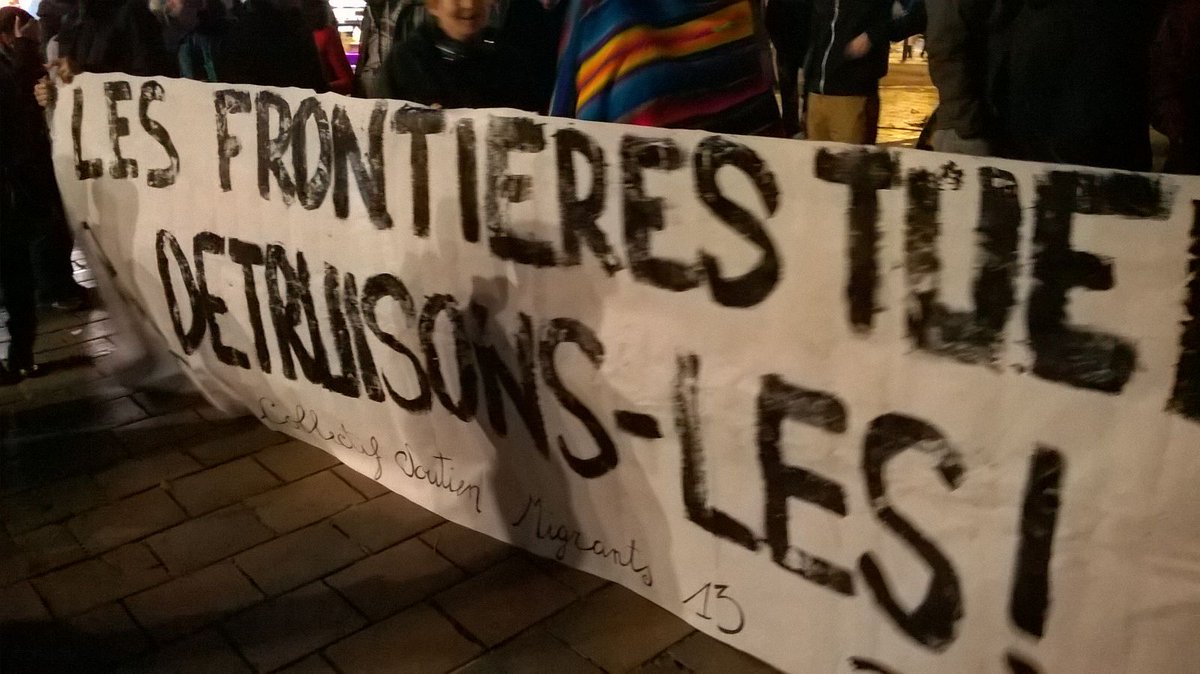 LES FRONTIERES TUE
DETRUISONS-LES !
Collectif Soutien Migrants 13